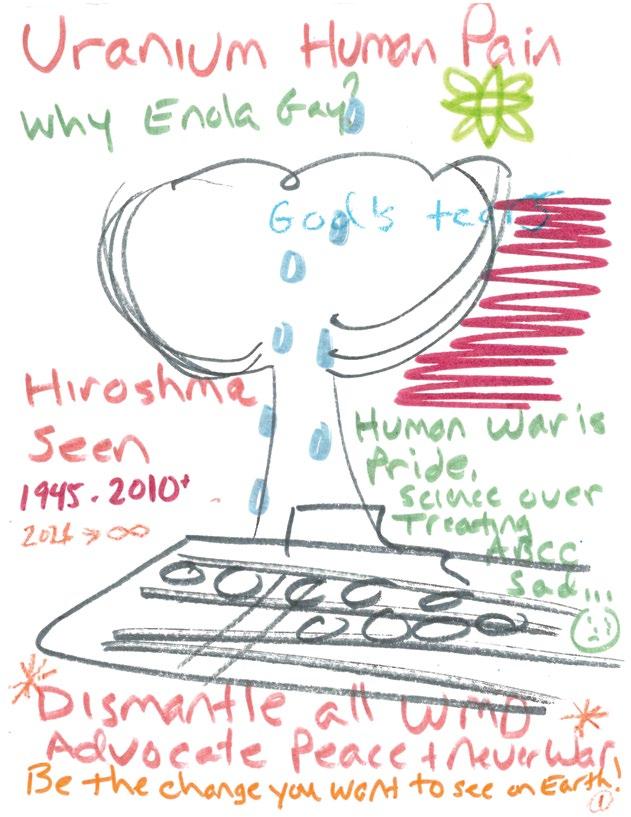 Uranium Human Pain
Why Enola Gay?
God's tears
Hiroshma
Seen
1945 - 2010+
2021 → ∞
Human War is
Pride,
Science over
Treating
ABCC
Sad...
Dismantle all WMD
Advocate Peace + Never War
Be the change you want to see on Earth!
1